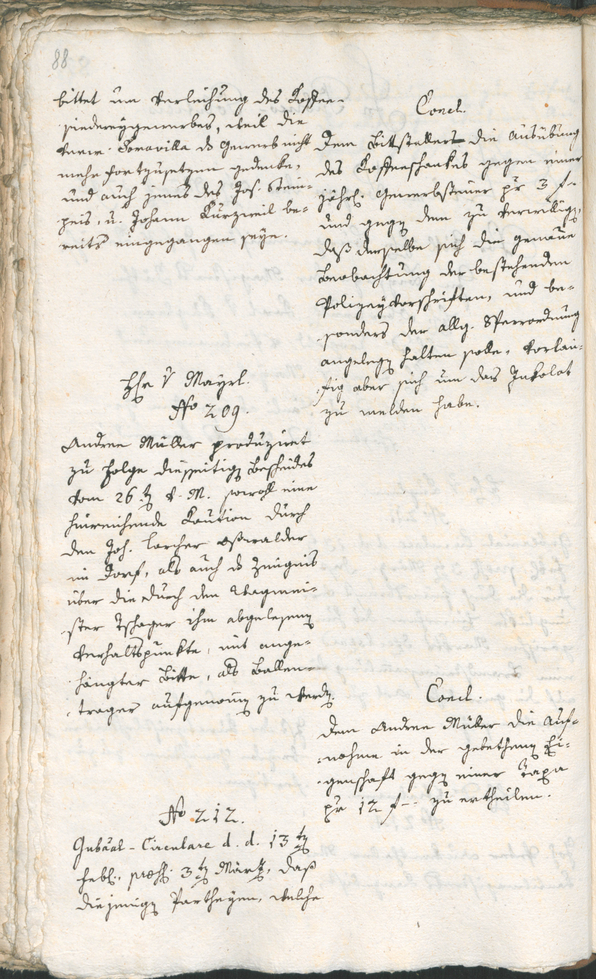 88.
bittet um Verleihung des Kaffee-
siedereygewerbes, weil die
Soravilla das Gewerb nicht
mehr fortzusetzen gedenke,
und auch jenes des Jos. Stein-
peis, u. Johann Kurzweil be-
reits eingegangen seye.
Concl.
Dem Bittsteller die Ausübung
des Kaffeeschankes gegen einer
jährl. Gewerbsteuer pr 3 f
und gegen dem zu bewilligen,
daß derselbe sich die genaue
Beobachtung der bestehenden
Polizeyvorschriften, und be-
sonders der allg. Sperrordnung
angelegen halten solle, vorläu-
fig aber sich um das Inkolat
zu melden habe.
Mayrl.
No 209.
Andree Müller produziret
zu Folge diesseitigen Bescheides
vom 26ten v. M. sowohl eine
hinreichende Kaution durch
den Joh. Larcher
im Dorf, als auch das Zeugnis
über die durch den Wagmei-
ster Tschager ihm abgelesenen
Verhaltspunkte, mit ange-
hängter Bitte, als Ballen-
trager aufgenomen zu werden.
Concl.
Dem Andree Müller die Auf-
nahme in der gebethenen Ei-
genschaft gegen einer Taxa
pr 12 f zu ertheilen.
No 212.
Gubernial-Circulare d. d. 13ten
Febr., praes. 3ten März, daß
diejenigen Partheyen, welche